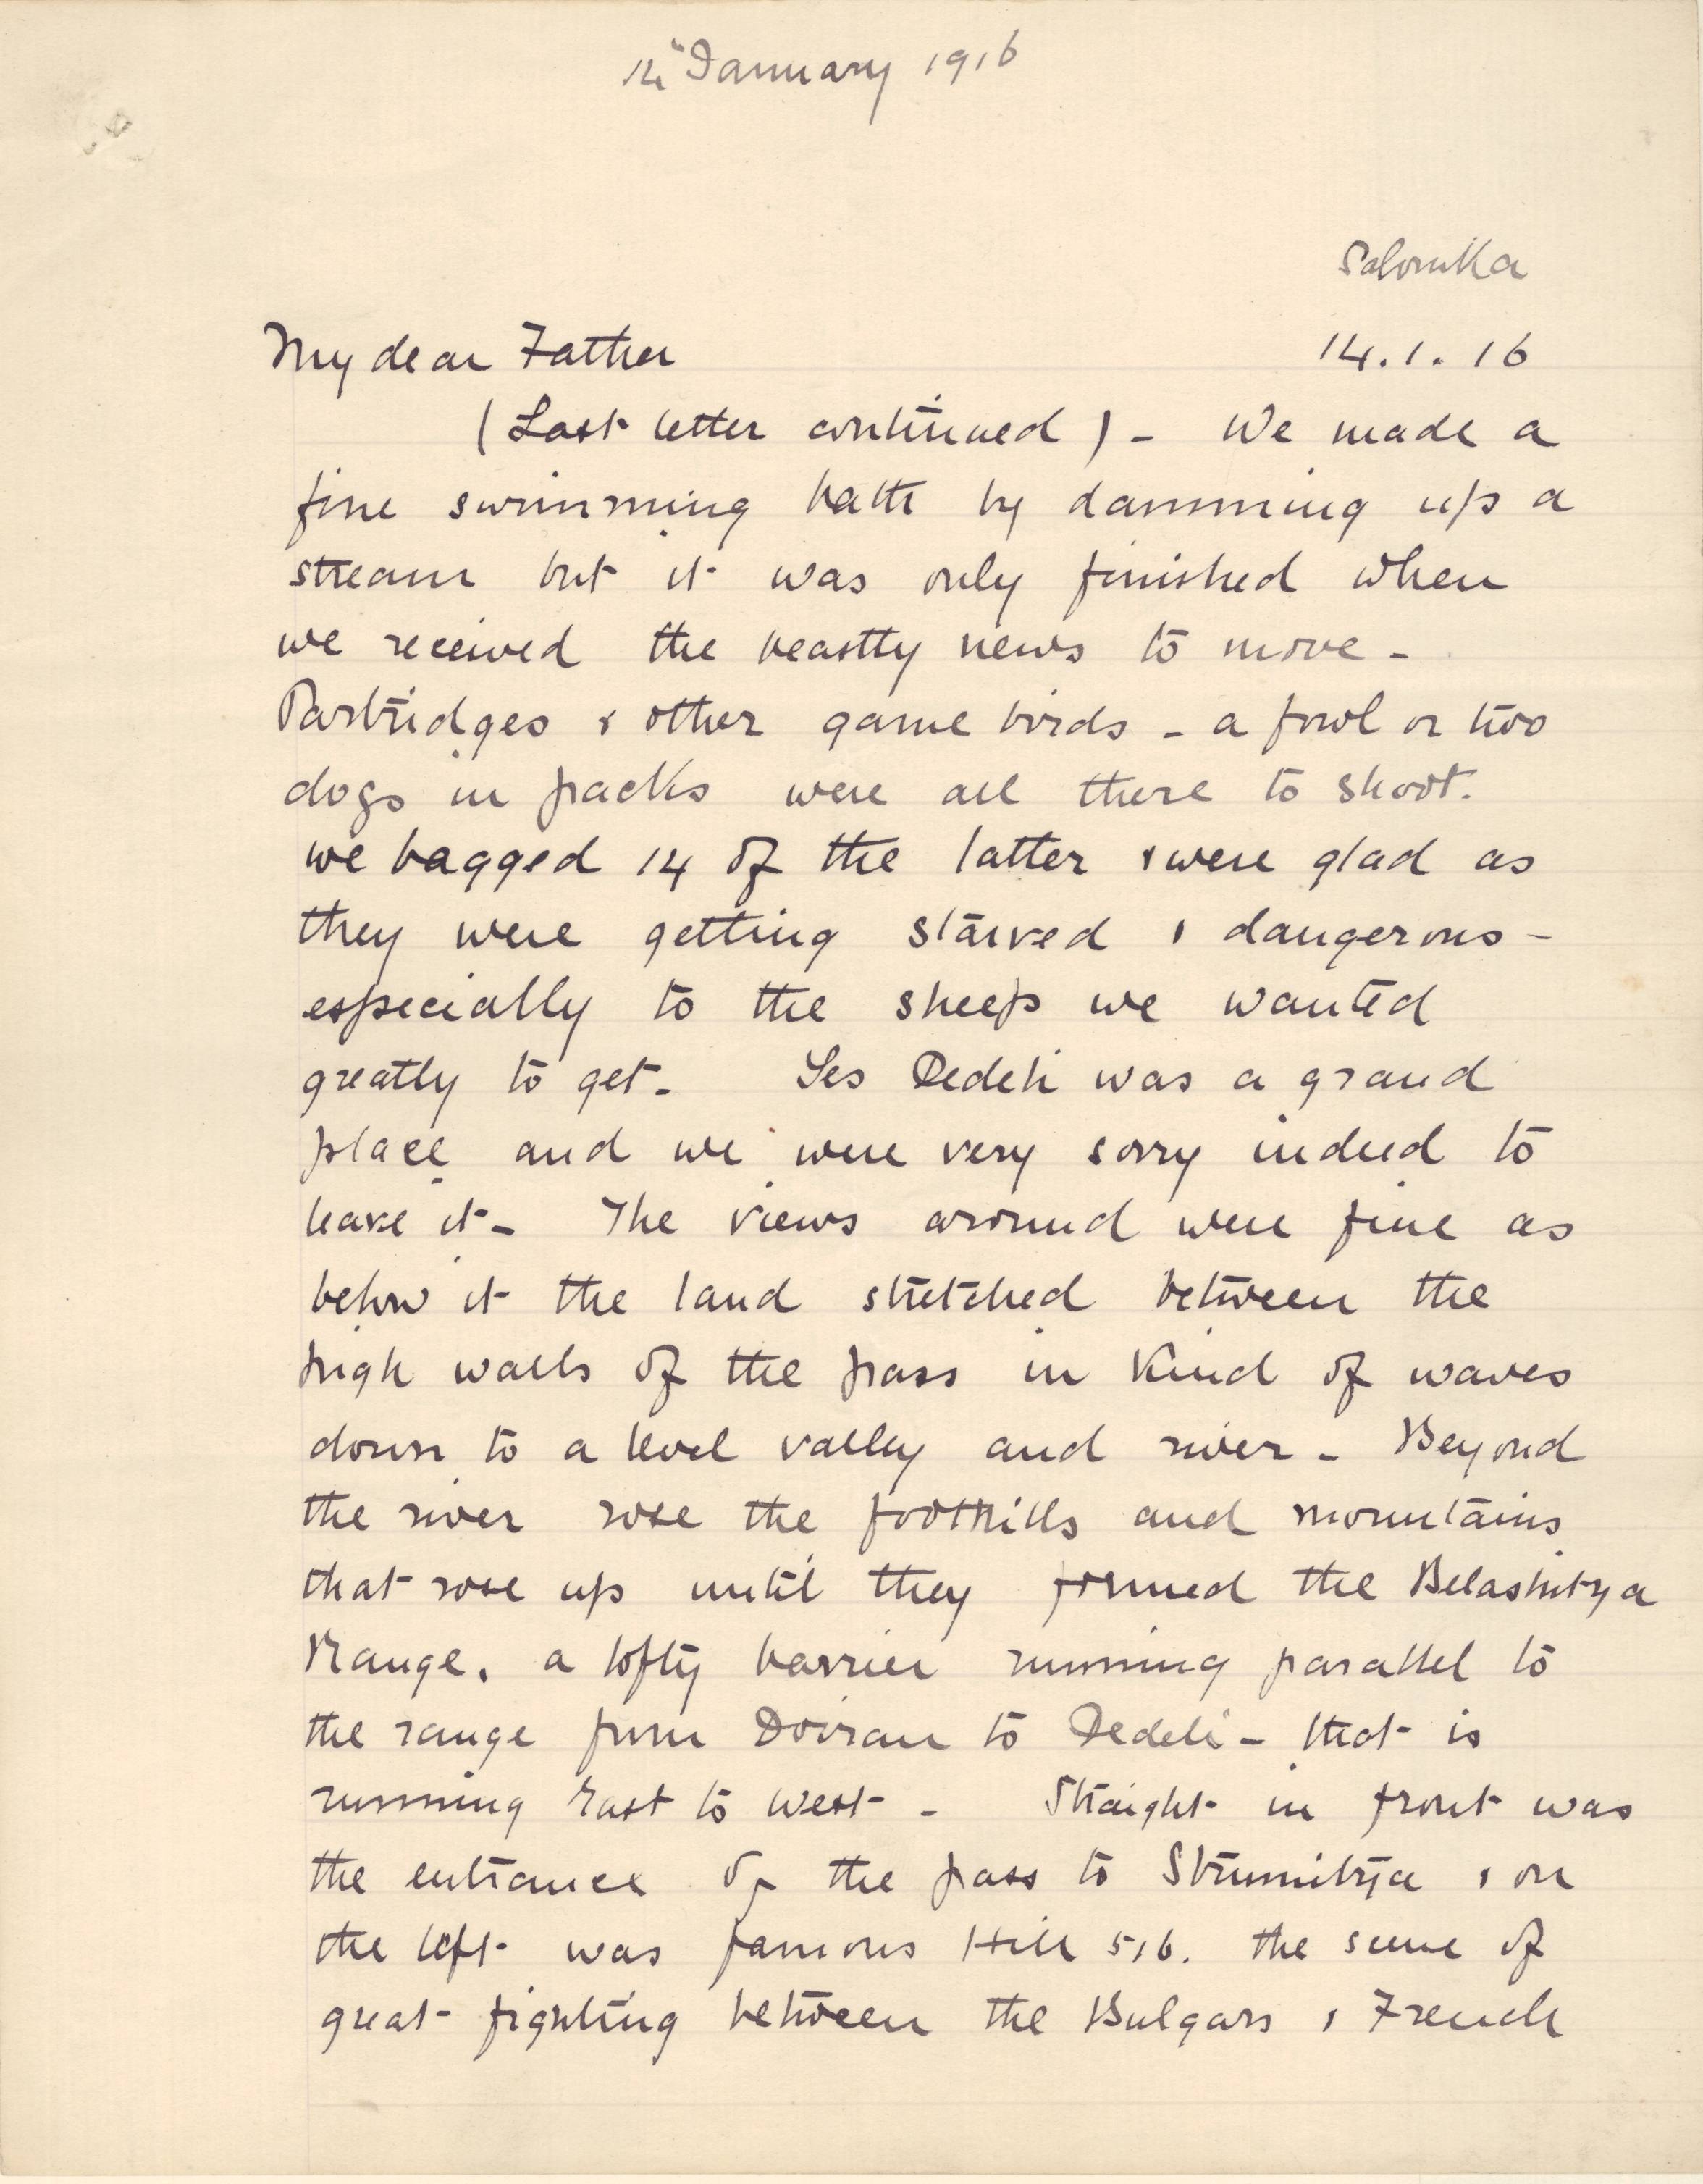 14th January 1916
Salonika
My dear Father 14.1.16
(Last letter continued) - We made a
fine swimming bath by damming up a
stream but it was only finished when
we received the beastly news to move -
Partridges & other game birds - a fowl or two
dogs in packs were all there to shoot.
we bagged 14 of the latter & were glad as
they were getting starved & dangerous -
especially to the sheep we wanted
greatly to get - Yes Dedeli was a grand
place and we were very sorry indeed to
leave it - The views around were fine as
below it the land stretched between the
high walls of the pass in kind of waves
down to a level valley and river - Beyond
the river rose the foothills and mountains
that rose up until they formed the Belashitza
Range. a lofty barrier running parallel to
the range from Doiran to Dedeli - that is
running East to West - Straight in front was
the entrance of the pass to Strumitza & on
the left was famous Hill 516. the scene of
great fighting between the Bulgars & French